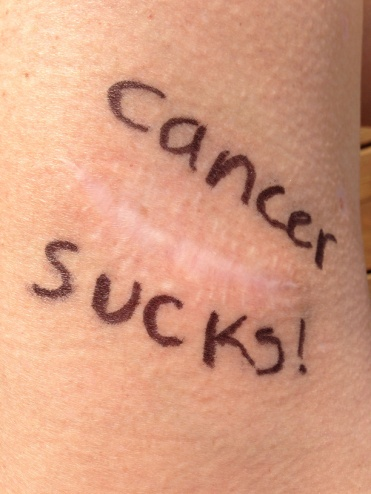 cancer
SUCKS!